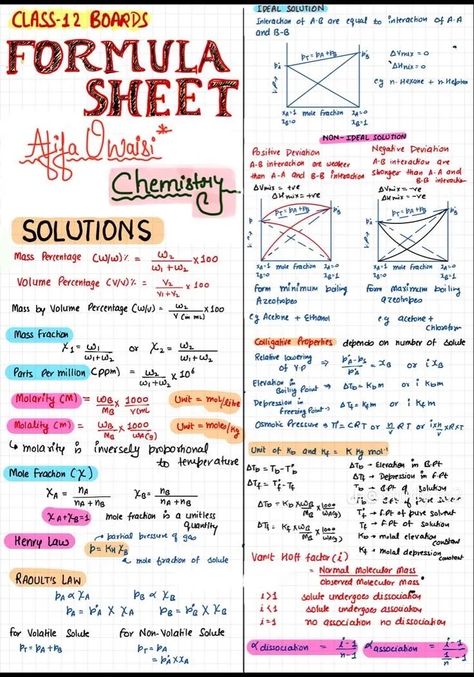 CLASS-12 BOARDS
FORMULA
SHEET
Atifa Owaisi
Chemistry
SOLUTIONS
Mass Percentage (W/w)% = w₂/(w₁+w₂) ×100
Volume Percentage (V/V)% = V₂/(V₁+V₂) ×100
Mass by Volume Percentage (w/v) = w₂/V (in mL) ×100
Mass Fraction
x₁ = w₁/(w₁+w₂) or x₂ = w₂/(w₁+w₂)
Parts Per million (ppm) = w₂/(w₁+w₂) ×10⁶
Molarity (M) = wB/MB × 1000/V(mL) Unit = mol/litre
Molality (m) = wB/MB × 1000/wA(g) Unit = moles/kg
↳ molarity is inversely proportional
to temperature
Mole Fraction (χ)
χA = nA/(nA+nB) χB = nB/(nA+nB)
χA+χB=1 mole fraction is a unitless
quantity
Henry Law
partial pressure of gas
p = KH χB
mole fraction of solute
RAOULT'S LAW
pA ∝ χA pB ∝ χB
pA = p°A × χA pB = p°B × χB
for Volatile Solute for Non-Volatile Solute
PT = pA + pB PT = pA
= p°A × χA
IDEAL SOLUTION
Interaction of A-B are equal to interaction of A-A
and B-B
PT = pA + pB p°B
ΔVmix = 0
ΔHmix = 0
eg n-Hexane + n-Heptane
χA=1 mole fraction χA=0
χB=0 χB=1
NON-IDEAL SOLUTION
Positive Deviation Negative Deviation
A-B interaction are weaker A-B interaction are
than A-A and B-B interaction stronger than A-A and
B-B interaction
ΔVmix = +ve ΔVmix = -ve
ΔHmix = +ve ΔHmix = -ve
PT = pA + pB p°B PT = pA + pB p°B
χA=1 mole fraction χA=0 χA=1 mole fraction χA=0
χB=0 χB=1 χB=0 χB=1
form minimum boiling form maximum boiling
Azeotropes azeotropes
eg Acetone + Ethanol eg acetone +
Chloroform
Colligative Properties depends on number of solute
Relative lowering
of V.P ⇒ (p°A - pA)/p°A = χB or iχB
Elevation in
Boiling Point ⇒ ΔTb = Kb m or i Kb m
Depression in
freezing Point ⇒ ΔTf = Kf m or i Kf m
Osmotic Pressure = Π = CRT or n/V RT or
Unit of Kb and Kf = K Kg mol⁻¹
ΔTb = Tb - T°b ΔTb → Elevation in B.Pt
ΔTf = T°f - Tf ΔTf → Depression in F.Pt
Tb → B.Pt of solution
ΔTb = Kb × wB/MB × 1000/wA(g) T°b → B.Pt of pure solvent
T°f → F.Pt of pure solvent
ΔTf = Kf × wB/MB × 1000/wA(g) Tf → F.Pt of solution
Kb → molal elevation constant
Kf → molal depression constant
Vant Hoff factor (i)
= Normal molecular mass
observed molecular mass
i>1 solute undergoes dissociation
i<1 solute undergoes association
i=1 no association no dissociation
α dissociation = (i-1)/(n-1) α association = (i-1)/(1/n - 1)